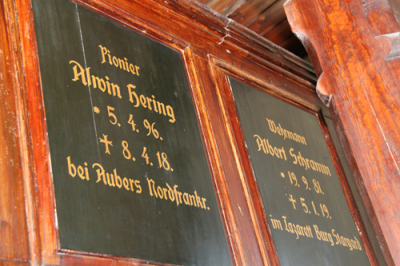 Pionier
Alwin Hering
* 5. 4. 96.
† 8. 4. 18.
bei Aubers Nordfrankr.
Wehrmann
Albert Schramm
* 19. 9. 81.
† 5. 1. 19.
im Lazarett Burg